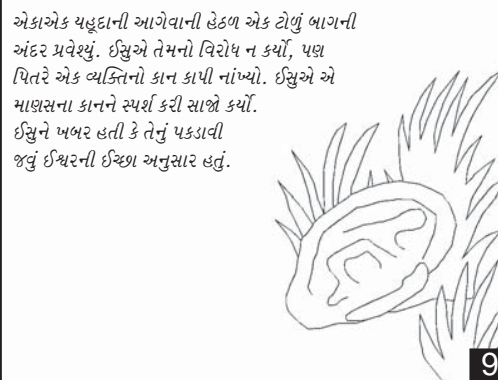 એકાએક યહૂદાની આગેવાની હેઠળ એક ટોળું બાગની
અંદર પ્રવેશ્યું. ઈસુએ તેમનો વિરોધ ન કર્યો, પણ
પિતરે એક વ્યક્તિનો કાન કાપી નાંખ્યો. ઈસુએ એ
માણસના કાનને સ્પર્શ કરી સાજો કર્યો.
ઈસુને ખબર હતી કે તેનું પકડાવી
જવું ઈશ્વરની ઈચ્છા અનુસાર હતું.
9